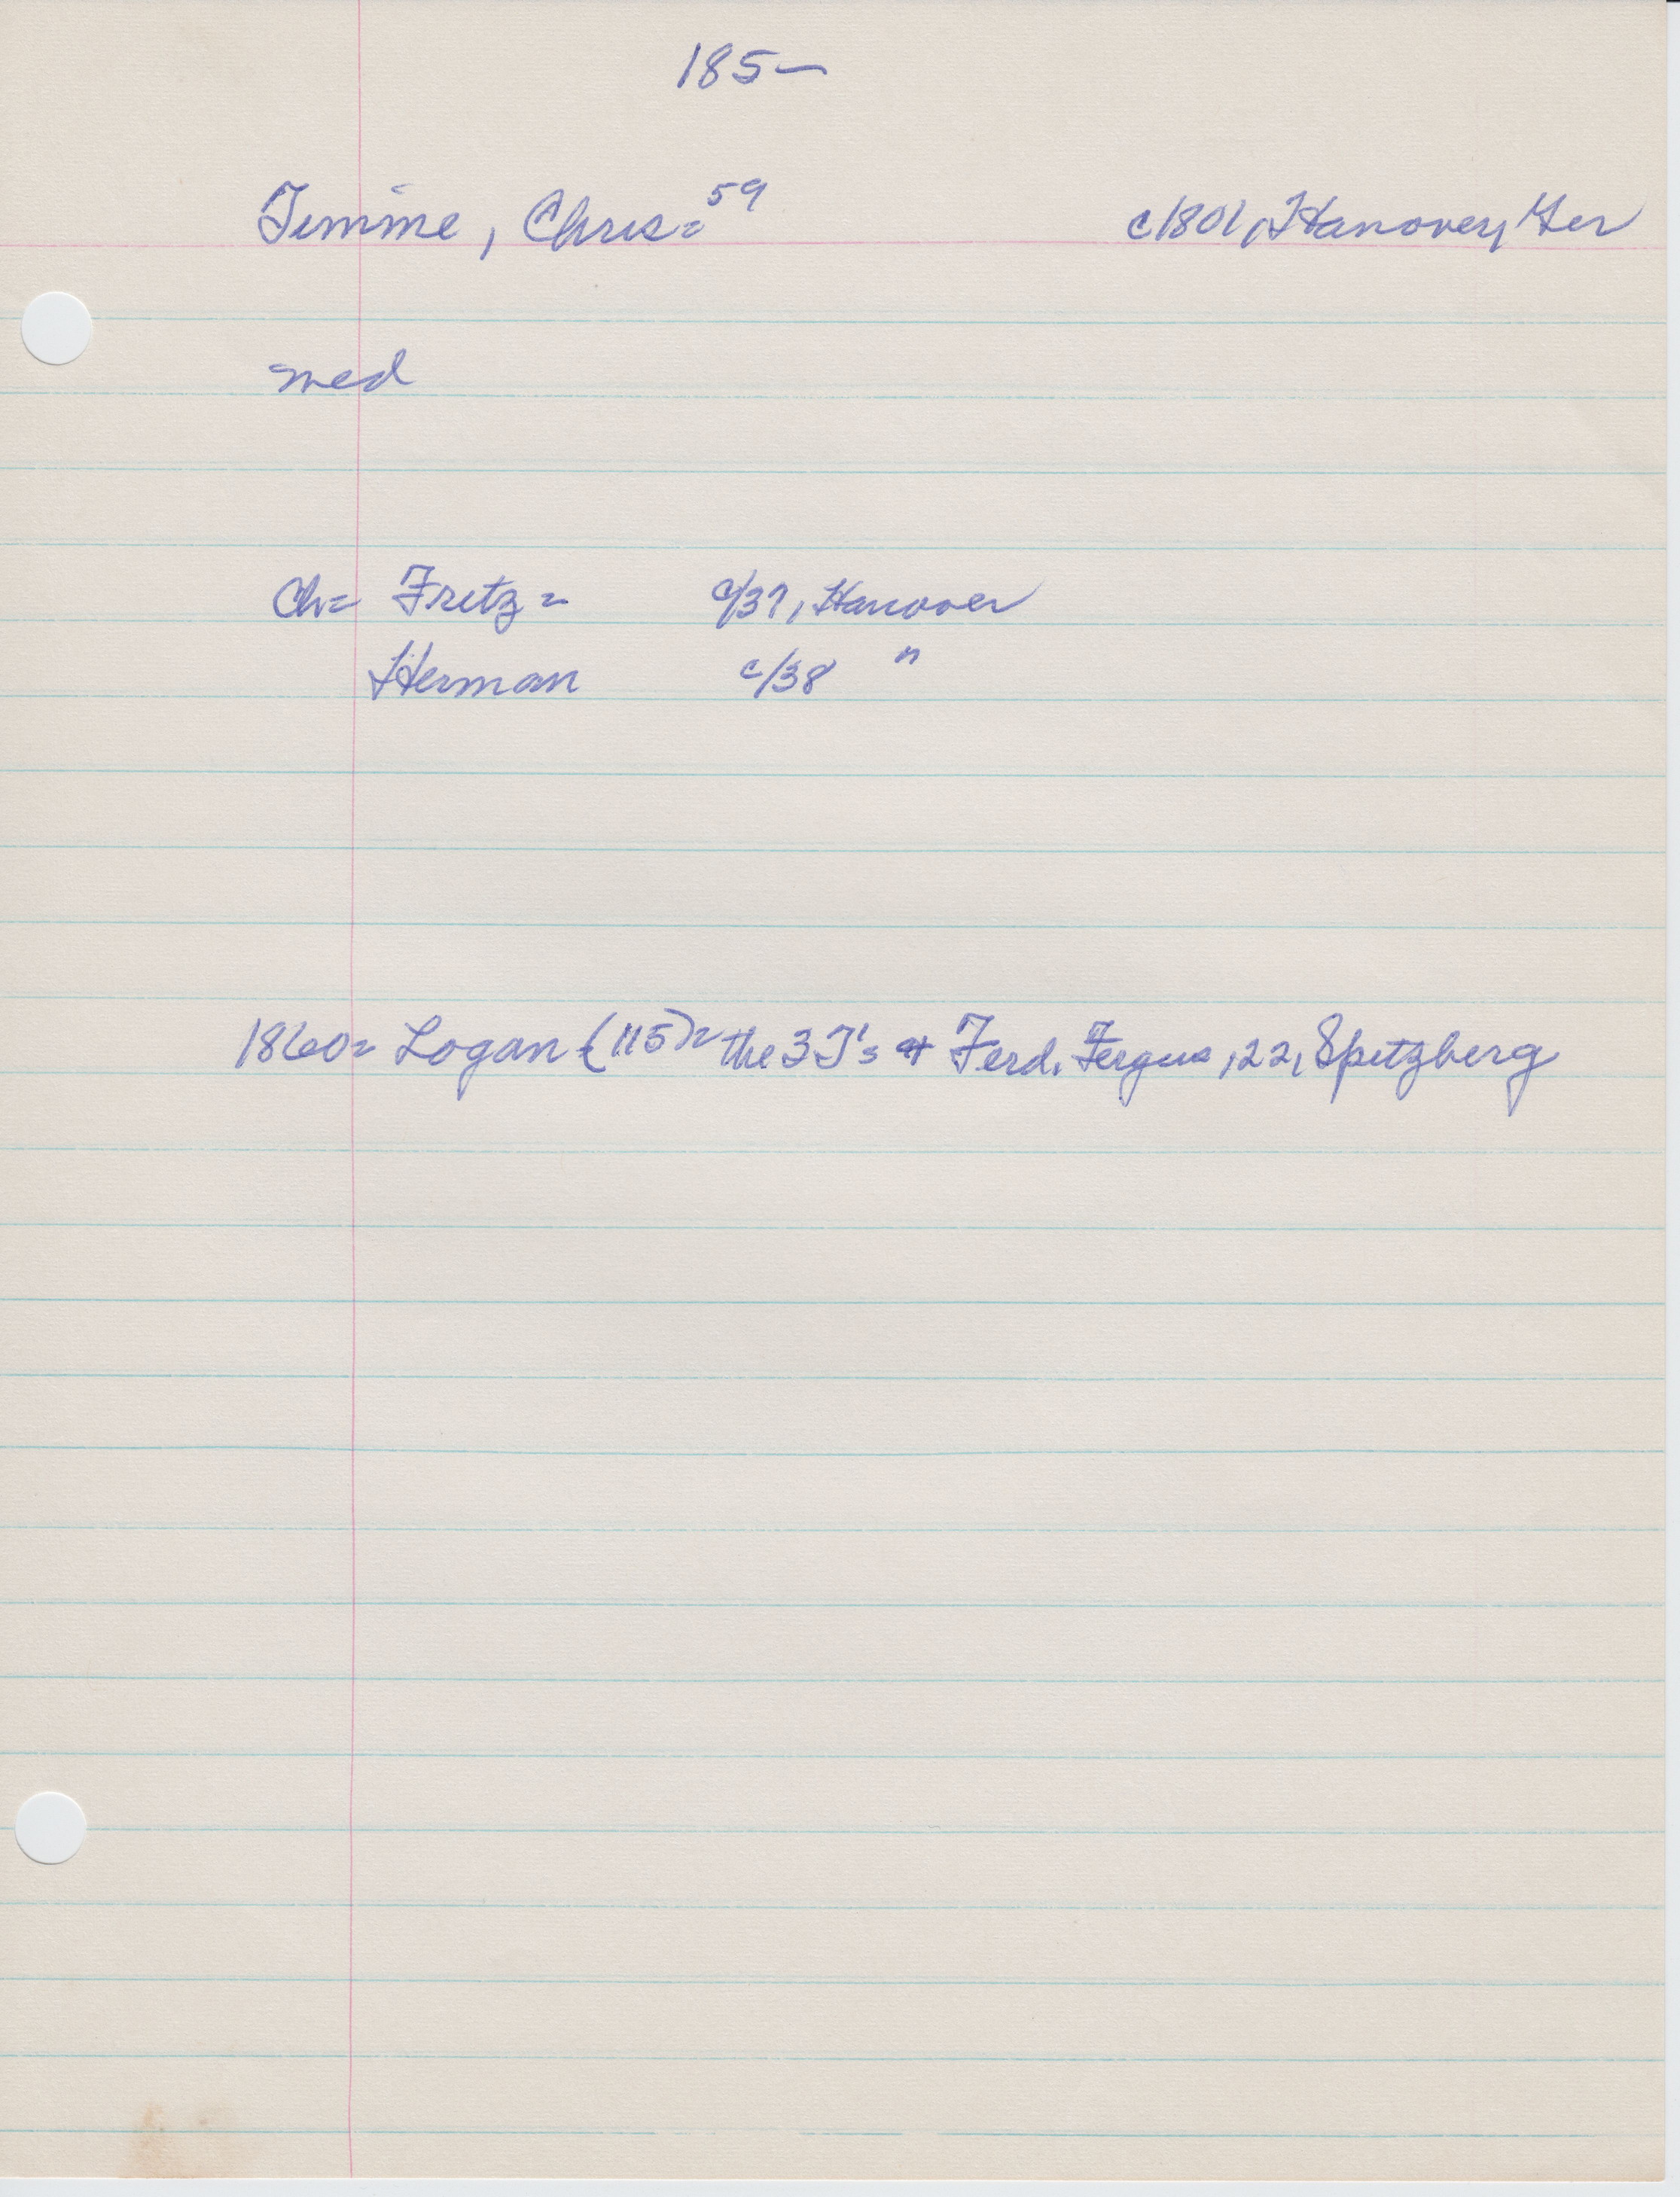 185—
Temme, Chris= 59 c1801, Hanover, Ger
med
Ch= Fritz= c/37, Hanover
Herman c/38 "
1860= Logan (115)= the 3 T's & Ferd. Fergus, 22, Spitzberg